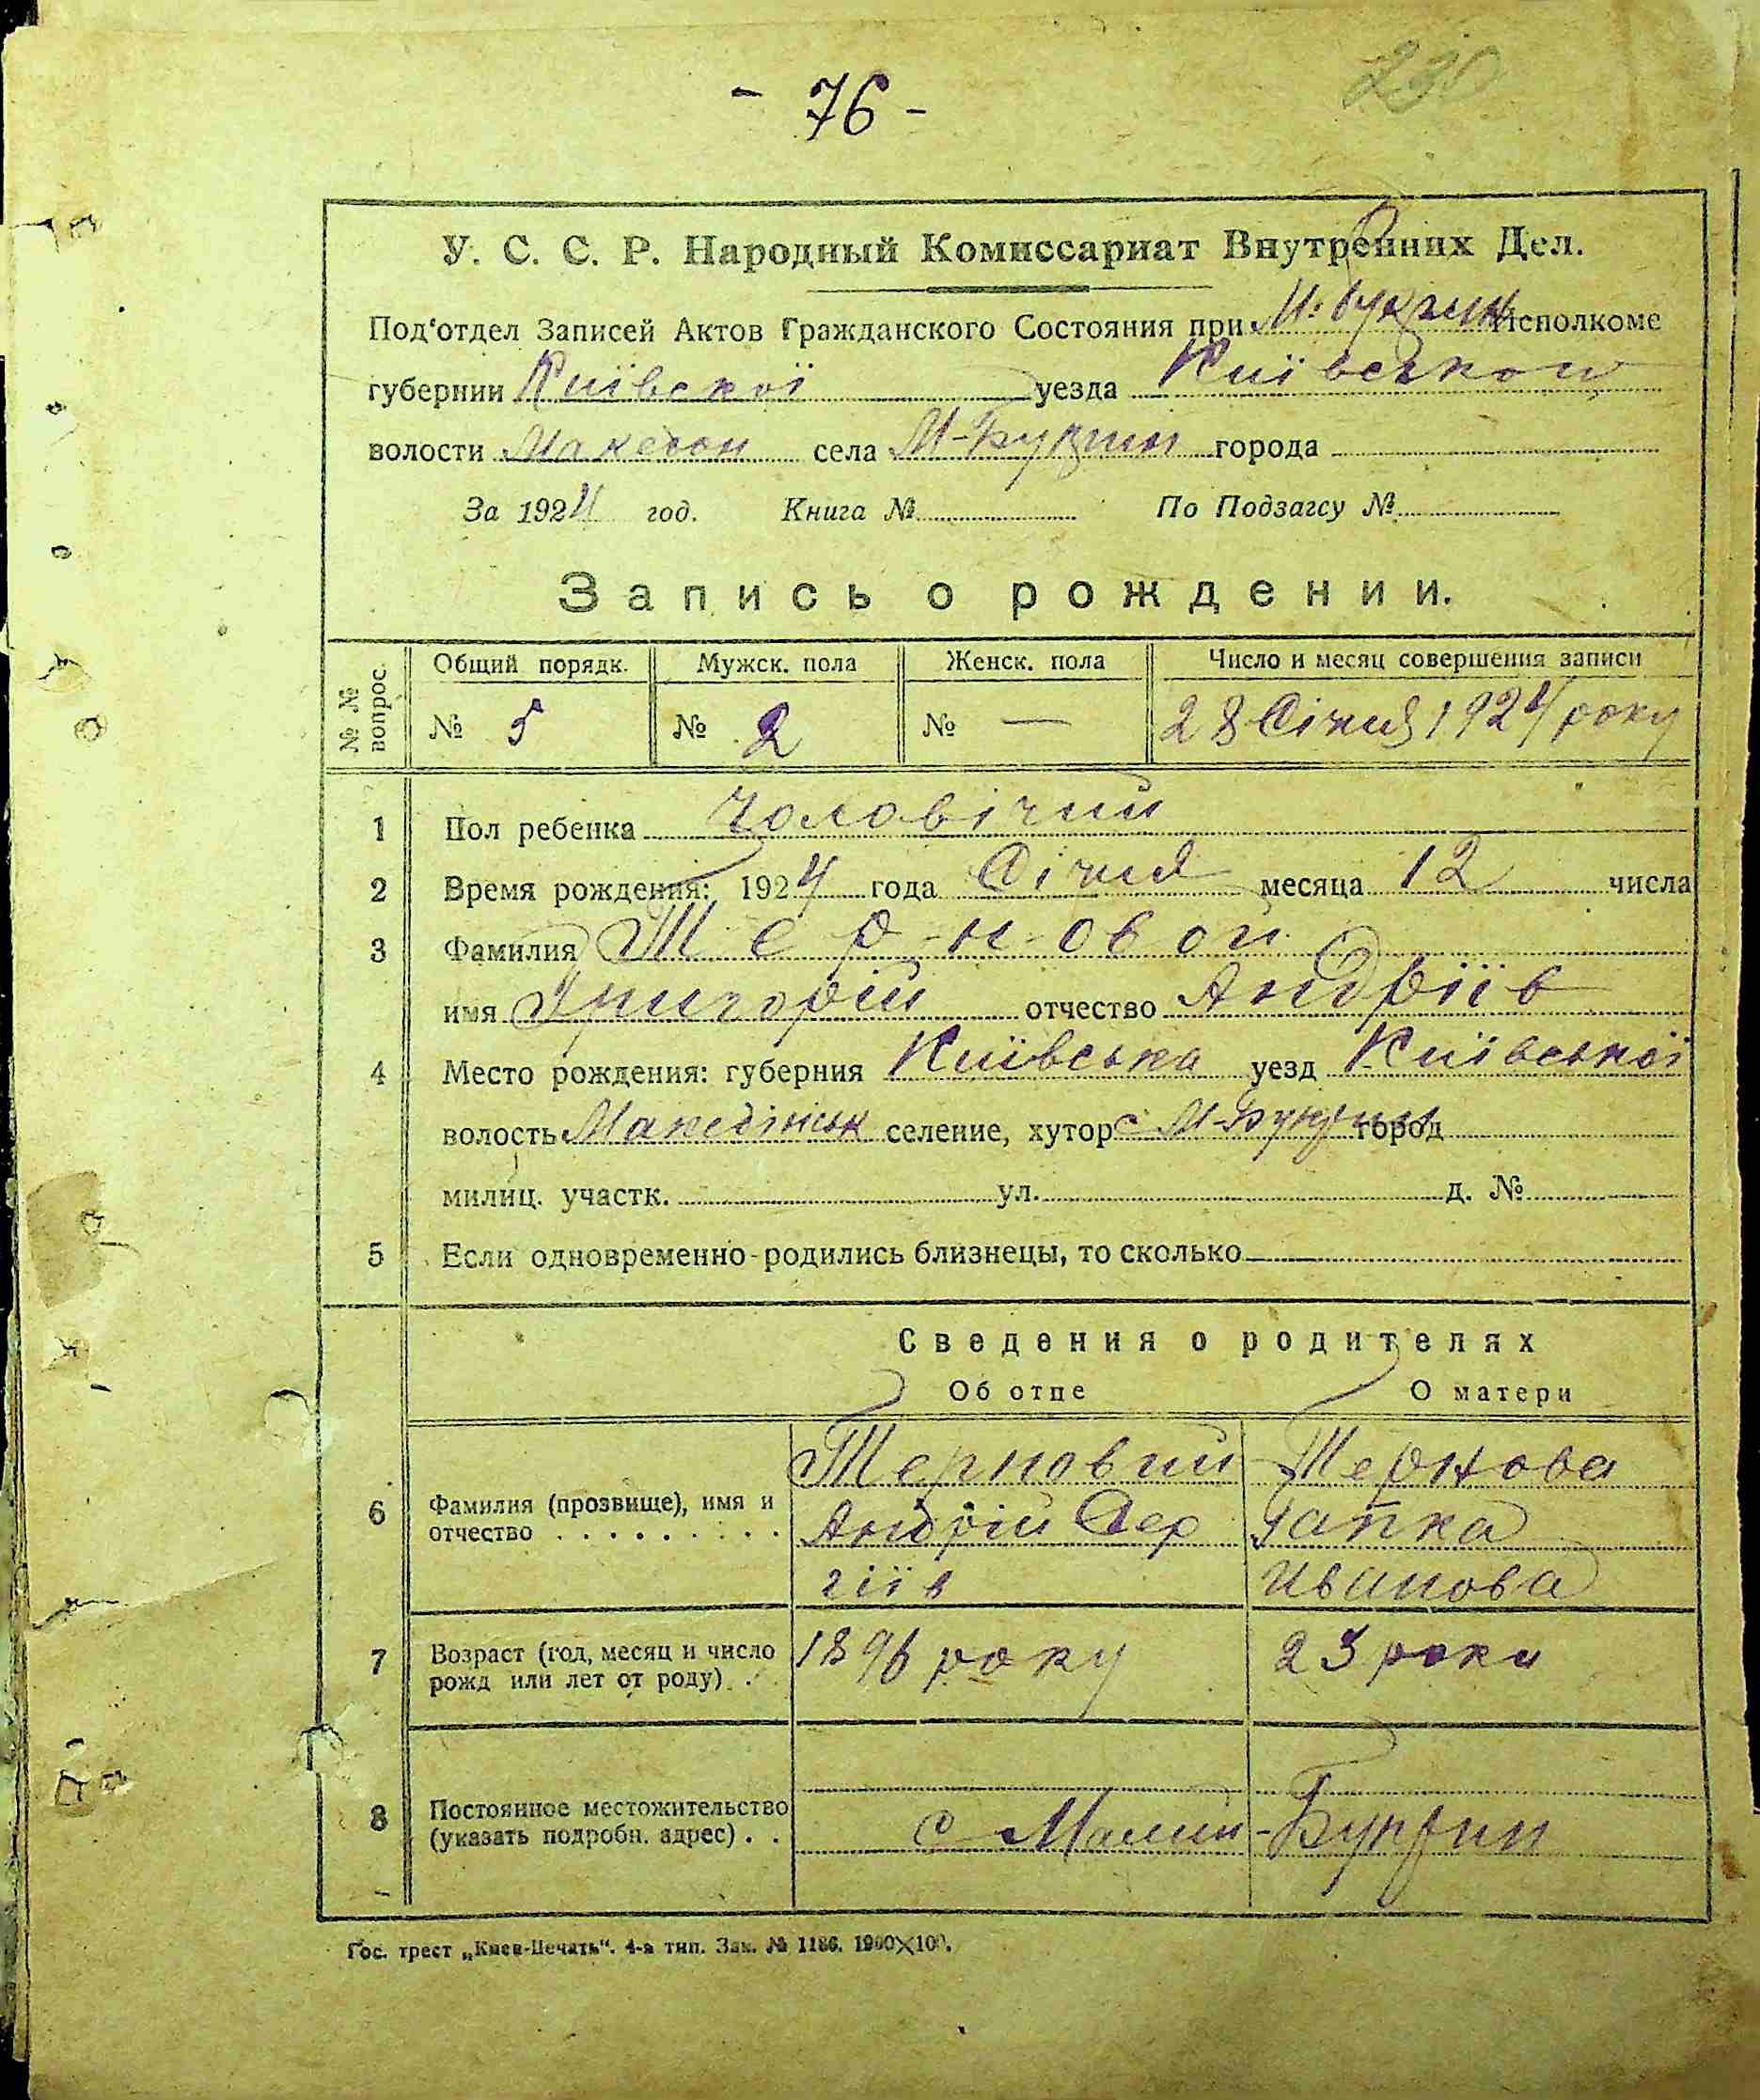 - 76 -
230
У. С. С. Р. Народный Комиссариат Внутренних Дел.
Под'отдел Записей Актов Гражданского Состояния при М. Букрин Исполкоме
губернии Київскої уезда Київськом
волости Македон села М-Букрин города
За 1924 год. Книга № По Подзагсу №
Запись о рождении.
№ № вопрос. Общий порядк. Мужск. пола Женск. пола Число и месяц совершения записи
№ 5 № 2 № — 28 Січня 1924 року
1 Пол ребенка Чоловічий
2 Время рождения: 1924 года Січня месяца 12 числа
3 Фамилия Терновой
имя Григорій отчество Андріїв
4 Место рождения: губерния Київська уезд Київської
волость Македінськ селение, хутор с М-Букрин город
милиц. участк. ул. д. №
5 Если одновременно-родились близнецы, то сколько
Сведения о родителях
Об отце О матери
6 Фамилия (прозвище), имя и отчество Терновий Тернова
Андрій Сер Гапка
гіїв Иванова
7 Возраст (год, месяц и число рожд или лет от роду) 1896 року 23 роки
8 Постоянное местожительство (указать подробн. адрес) с Малий-Букрин
Гос. трест „Киев-Печать“. 4-я тип. Зак. № 1186. 1900×100.